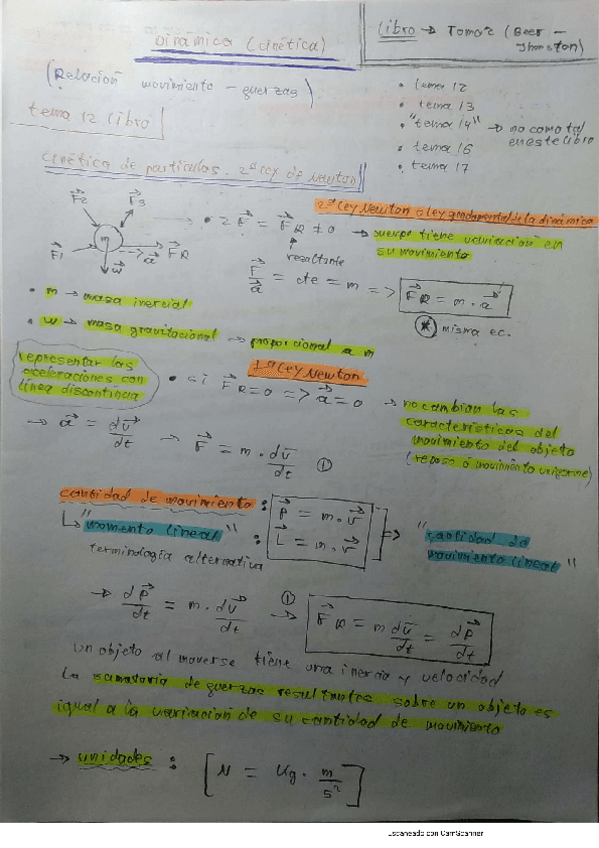 Dinámica (Cinética)
Libro → Tomo 2 (Beer - Jhonston)
(Relación movimiento - fuerzas)
tema 12 libro
• tema 12
• tema 13
• "tema 14" → no como tal en este libro
• tema 16
• tema 17
Cinética de partículas. 2ª Ley de Newton
2ª Ley Newton o ley fundamental de la dinámica
F2 F3
m
F1 w a FR
→ • Σ F = FR ≠ 0 → cuerpo tiene variación en su movimiento
resultante
F/a = cte = m => FR = m · a
* misma ec.
• m → masa inercial
• w → masa gravitacional → proporcional a m
representar las aceleraciones con línea discontinua
1ª Ley Newton
• si FR = 0 => a = 0 → no cambian las características del movimiento del objeto (reposo o movimiento uniforme)
→ a = dv/dt → F = m · dv/dt ①
cantidad de movimiento : P = m · v
↳ "momento lineal" : L = m · v => "cantidad de movimiento lineal"
terminología alternativa
→ dP/dt = m · dv/dt → ① FR = m dv/dt = dP/dt
un objeto al moverse tiene una inercia y velocidad
La sumatoria de fuerzas resultantes sobre un objeto es
igual a la variación de su cantidad de movimiento
→ unidades : [N = Kg · m/s²]
Escaneado con CamScanner